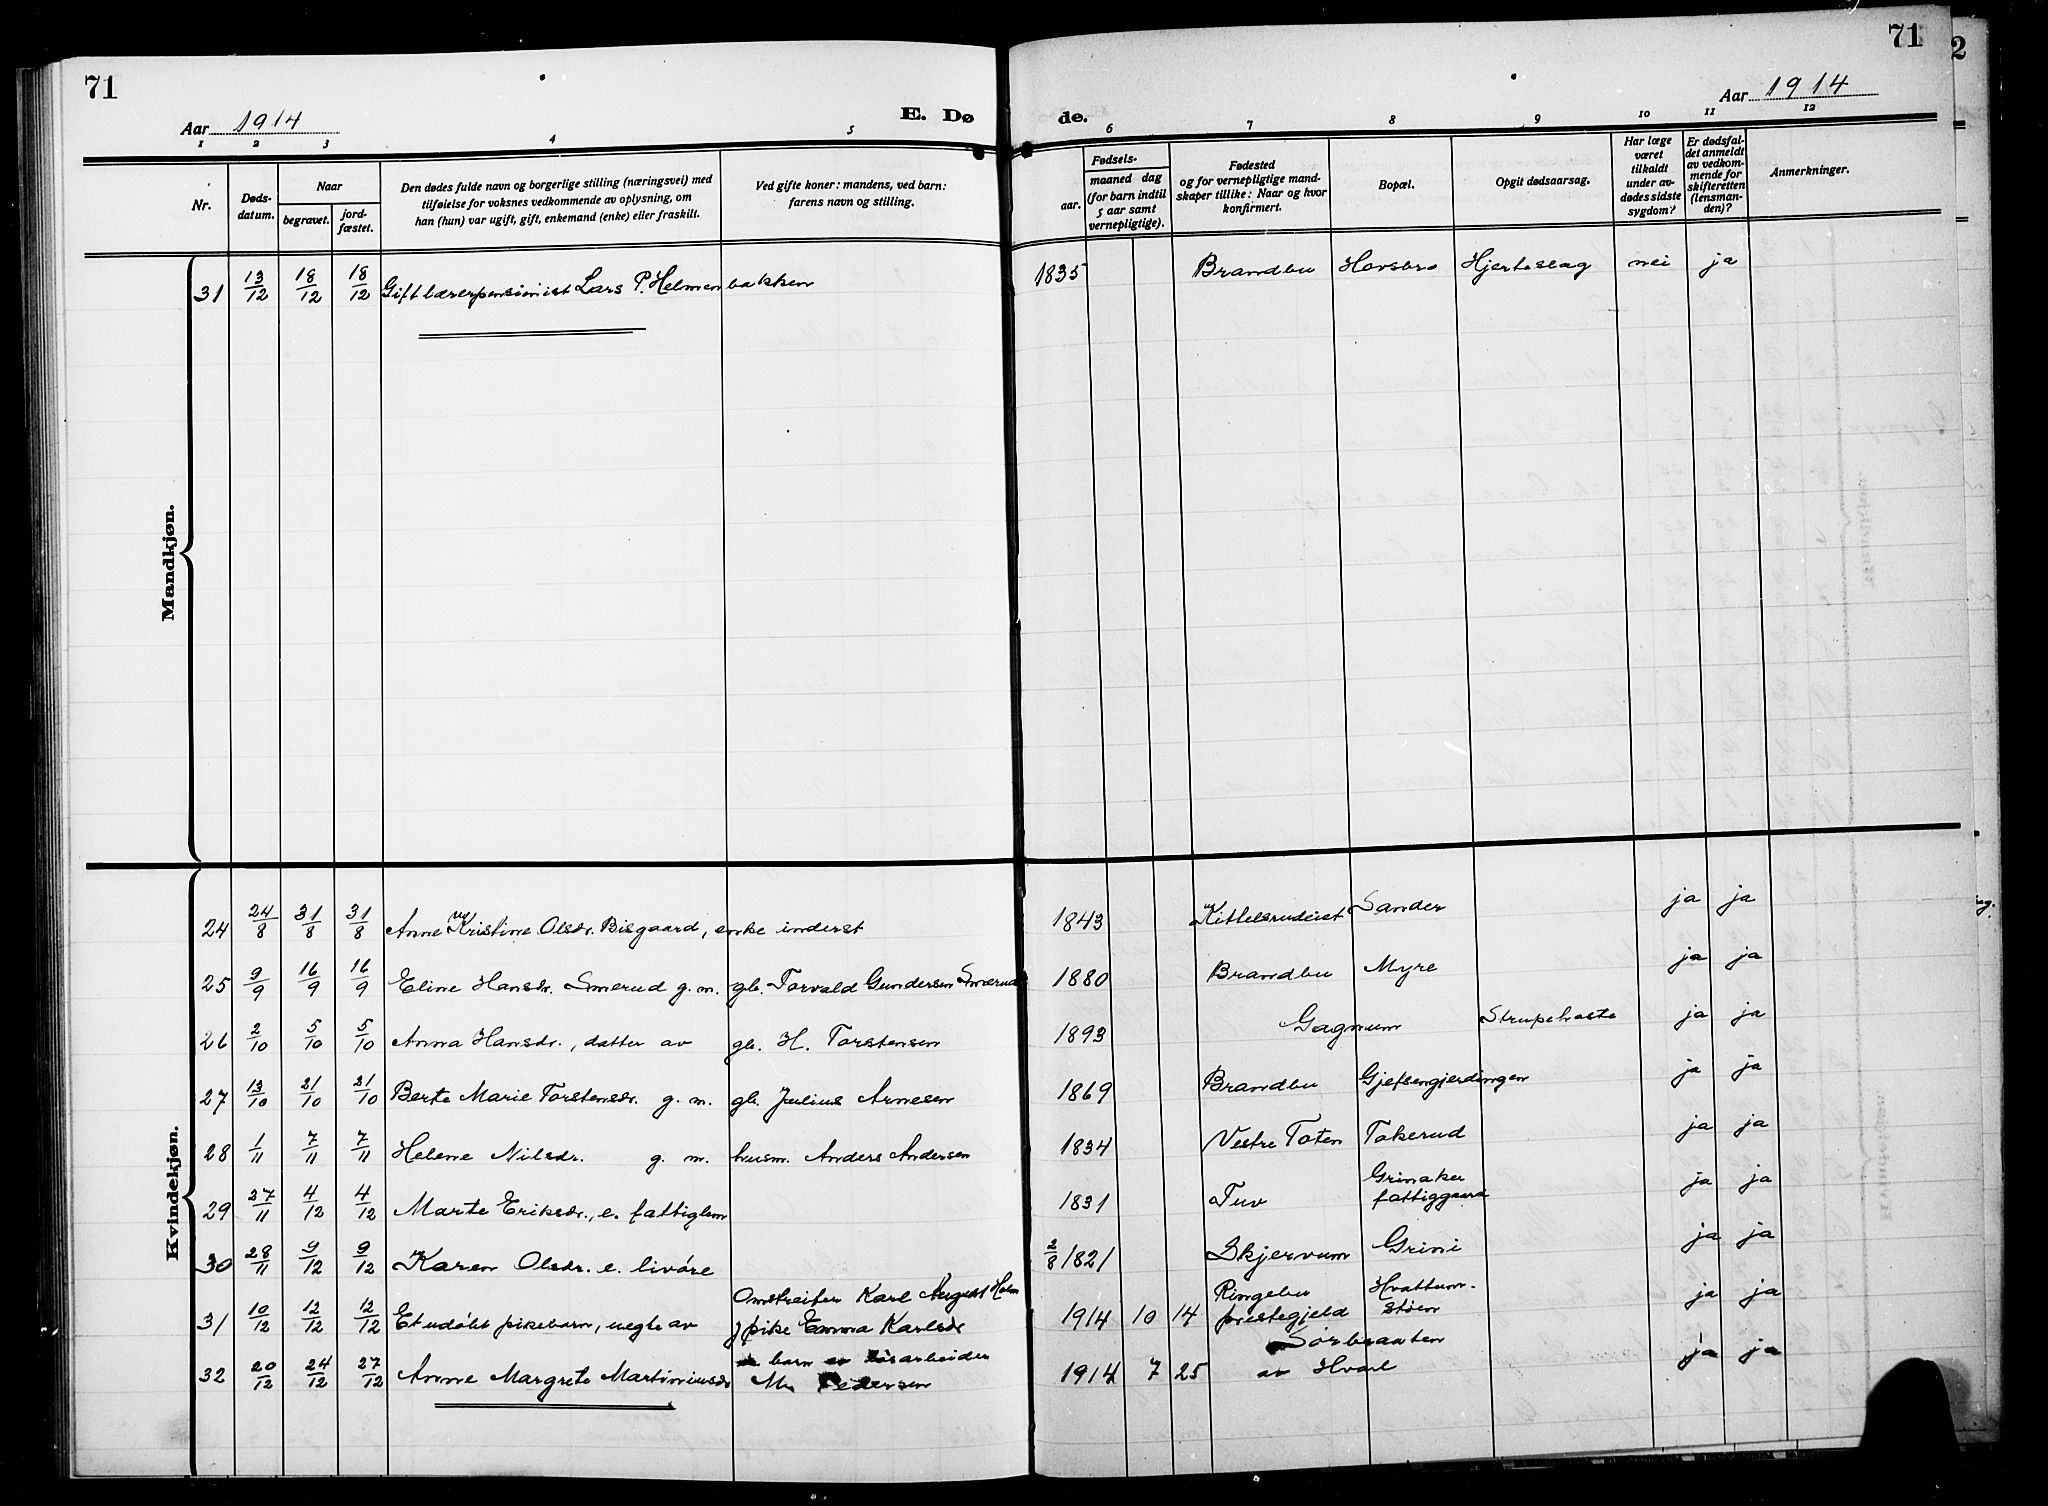 71
71
2
Aar 1914
E. Døde.
Aar 1914
1 2 3 4 5 6 7 8 9 10 11 12
Nr.
Døds-
datum.
Naar
begravet.
jord-
fæstet.
Den dødes fulde navn og borgerlige stilling (næringsvei) med
tilføielse for voksnes vedkommende av oplysning, om
han (hun) var ugift, gift, enkemand (enke) eller fraskilt.
Ved gifte koner: mandens, ved barn:
farens navn og stilling.
Fødsels-
aar.
maaned dag
(for barn indtil
5 aar samt
vernepligtige).
Fødested
og for vernepligtige mand-
skaper tillike: Naar og hvor
konfirmert.
Bopæl.
Opgit dødsaarsag.
Har læge
været
tilkaldt
under av-
dødes sidste
sygdom?
Er dødsfal-
det anmeldt
av vedkom-
mende for
skifteretten
(lensman-
den)?
Anmerkninger.
Mandkjøn.
31 13/12 18/12 18/12 Gift lærerpensionist Lars P. Helmenbakken 1835 Brandbu Hovsbro Hjerteslag nei ja
Kvindekjøn.
24 24/8 31/8 31/8 Anne Kristine Olsdr. Bisgaard, enke inderst 1843 Kittelsrudeiet Sander ja ja
25 9/9 16/9 16/9 Eline Hansdr. Smerud g. m. gb. Torvald Gundersen Smerud 1880 Brandbu Myre ja ja
26 2/10 5/10 5/10 Anna Hansdr., datter av gb. H. Torstensen 1893 Gagnum Strupehoste ja ja
27 13/10 21/10 21/10 Berte Marie Torstensdr. g. m. gb. Julius Arnesen 1869 Brandbu Gjefsengjerdingen ja ja
28 1/11 7/11 7/11 Helene Nilsdr. g. m. husm. Anders Andersen 1834 Vestre Toten Tokerud ja ja
29 27/11 4/12 4/12 Marte Eriksdr., e. fattiglem 1831 Tuv Grinaker
fattiggaard ja ja
30 28/11 9/12 9/12 Karen Olsdr. e. livøre 2/8 1821 Skjervum Grini ja ja
31 10/12 12/12 12/12 Et udøbt pikebarn, uegte av Omstreifer Karl August Holm
pike Emma Karlsdr 1914 10 14 Ringebu
prestegjeld Hvattum-
støen ja ja
32 20/12 24/12 27/12 Anne Margrete Martiniusdr barn av
M. Pedersen 1914 7 25 Sørbraaten
av Hvarl ja ja